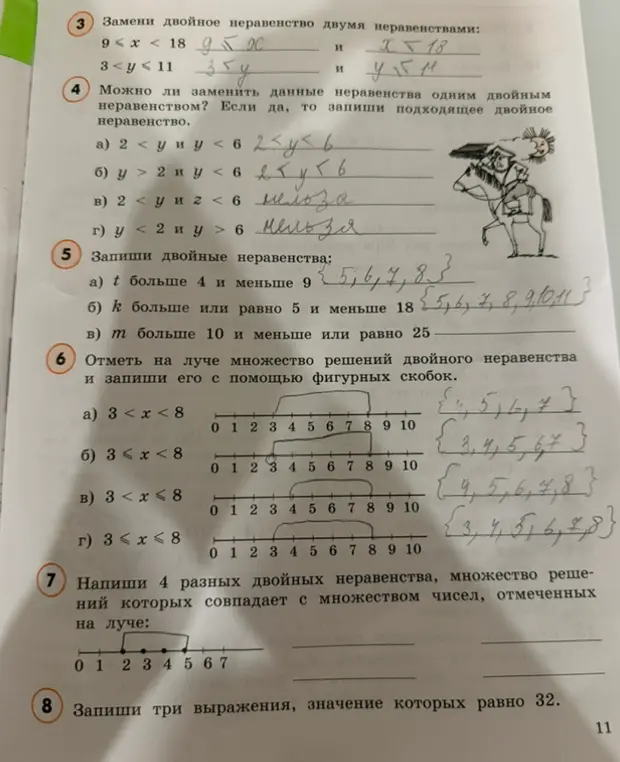 3 Замени двойное неравенство двумя неравенствами:
9 ⩽ x < 18 9 ⩽ x и x < 18
3 < y ⩽ 11 3 < y и y ⩽ 11
4 Можно ли заменить данные неравенства одним двойным
неравенством? Если да, то запиши подходящее двойное
неравенство.
а) 2 < y и y < 6 2 < y < 6
б) y > 2 и y < 6 2 < y < 6
в) 2 < y и z < 6 нельзя
г) y < 2 и y > 6 нельзя
5 Запиши двойные неравенства:
а) t больше 4 и меньше 9 {5,6,7,8}
б) k больше или равно 5 и меньше 18 {5,6,7,8,9,10,11}
в) m больше 10 и меньше или равно 25
6 Отметь на луче множество решений двойного неравенства
и запиши его с помощью фигурных скобок.
а) 3 < x < 8 {4,5,6,7}
0 1 2 3 4 5 6 7 8 9 10
б) 3 ⩽ x < 8 {3,4,5,6,7}
0 1 2 3 4 5 6 7 8 9 10
в) 3 < x ⩽ 8 {4,5,6,7,8}
0 1 2 3 4 5 6 7 8 9 10
г) 3 ⩽ x ⩽ 8 {3,4,5,6,7,8}
0 1 2 3 4 5 6 7 8 9 10
7 Напиши 4 разных двойных неравенства, множество реше-
ний которых совпадает с множеством чисел, отмеченных
на луче:
0 1 2 3 4 5 6 7
8 Запиши три выражения, значение которых равно 32.
11